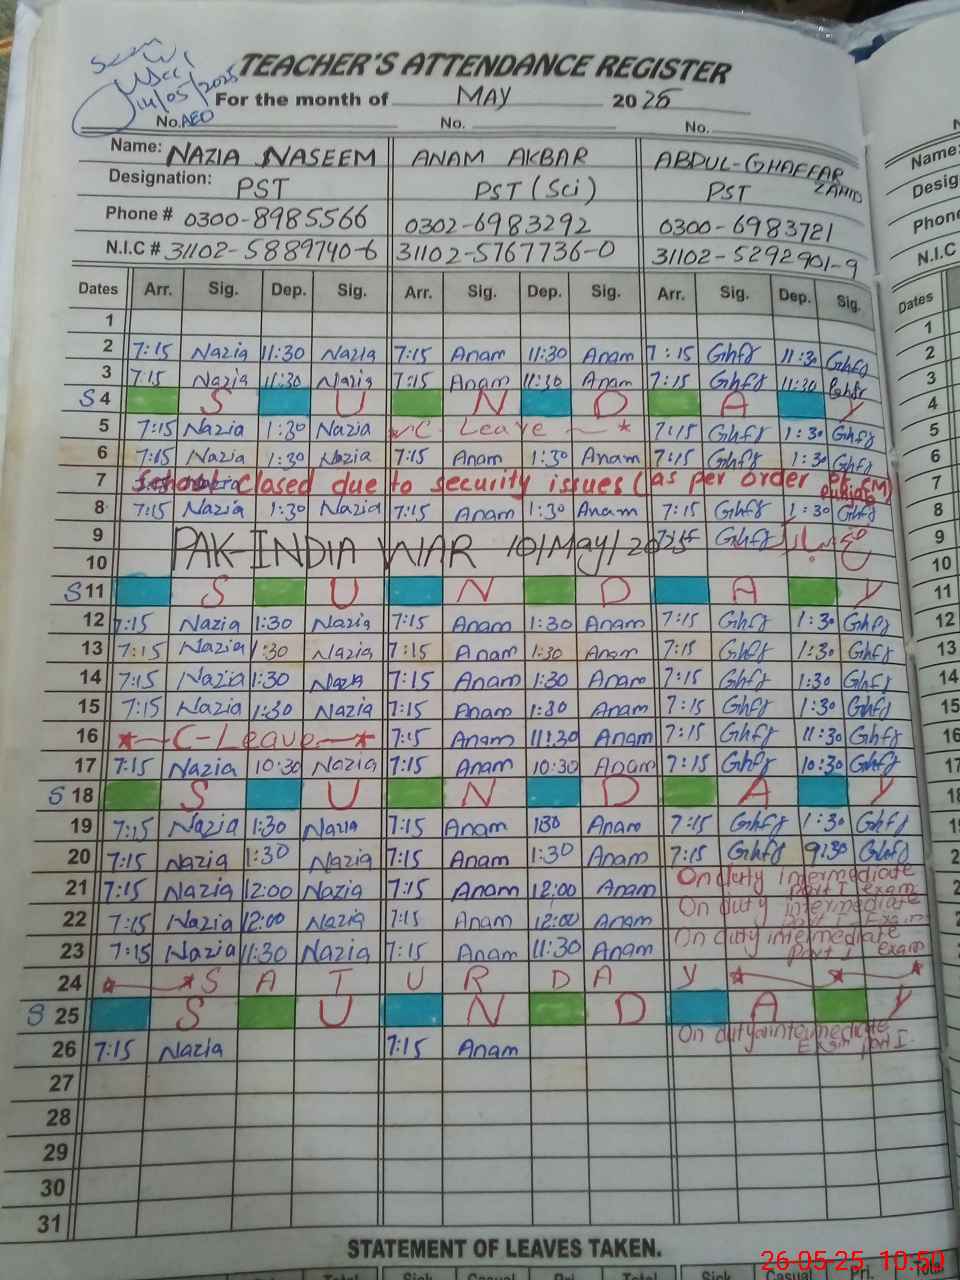 Seen
14/05/2025
AEO
TEACHER'S ATTENDANCE REGISTER
For the month of MAY 2025
No. No. No.
Name: NAZIA NASEEM ANAM AKBAR ABDUL-GHAFFAR ZAHID
Designation: PST PST (Sci) PST
Phone # 0300-8985566 0302-6983292 0300-6983721
N.I.C # 31102-5889740-6 31102-5767736-0 31102-5292901-9
Dates Arr. Sig. Dep. Sig. Arr. Sig. Dep. Sig. Arr. Sig. Dep. Sig.
1
2 7:15 Nazia 11:30 Nazia 7:15 Anam 11:30 Anam 7:15 Ghfr 11:30 Ghfr
3 7:15 Nazia 11:30 Nazia 7:15 Anam 11:30 Anam 7:15 Ghfr 11:30 Ghfr
S 4 S U N D A Y
5 7:15 Nazia 1:30 Nazia C- Leave 7:15 Ghfr 1:30 Ghfr
6 7:15 Nazia 1:30 Nazia 7:15 Anam 1:30 Anam 7:15 Ghfr 1:30 Ghfr
7 School closed due to security issues (as per order of CM Punjab)
8 7:15 Nazia 1:30 Nazia 7:15 Anam 1:30 Anam 7:15 Ghfr 1:30 Ghfr
9 7:15 Ghfr
10 PAK-INDIA WAR 10/May/2025
S 11 S U N D A Y
12 7:15 Nazia 1:30 Nazia 7:15 Anam 1:30 Anam 7:15 Ghfr 1:30 Ghfr
13 7:15 Nazia 1:30 Nazia 7:15 Anam 1:30 Anam 7:15 Ghfr 1:30 Ghfr
14 7:15 Nazia 1:30 Nazia 7:15 Anam 1:30 Anam 7:15 Ghfr 1:30 Ghfr
15 7:15 Nazia 1:30 Nazia 7:15 Anam 1:30 Anam 7:15 Ghfr 1:30 Ghfr
16 C-Leave 7:15 Anam 11:30 Anam 7:15 Ghfr 11:30 Ghfr
17 7:15 Nazia 10:30 Nazia 7:15 Anam 10:30 Anam 7:15 Ghfr 10:30 Ghfr
S 18 S U N D A Y
19 7:15 Nazia 1:30 Nazia 7:15 Anam 130 Anam 7:15 Ghfr 1:30 Ghfr
20 7:15 Nazia 1:30 Nazia 7:15 Anam 1:30 Anam 7:15 Ghfr 9:30 Ghfr
21 7:15 Nazia 12:00 Nazia 7:15 Anam 12:00 Anam On duty intermediate part I exam
22 7:15 Nazia 12:00 Nazia 7:15 Anam 12:00 Anam On duty intermediate part I Exam
23 7:15 Nazia 11:30 Nazia 7:15 Anam 11:30 Anam On duty intermediate part I exam
24 S A T U R D A Y
S 25 S U N D A Y
26 7:15 Nazia 7:15 Anam On duty intermediate Exam part I.
27
28
29
30
31
STATEMENT OF LEAVES TAKEN.
Total Sick Casual Total Sick Casual Total
26-05-25 10:50
Name:
Phone
N.I.C
Dates
1
2
3
4
5
6
7
8
9
10
11
12
13
14
15
16
17